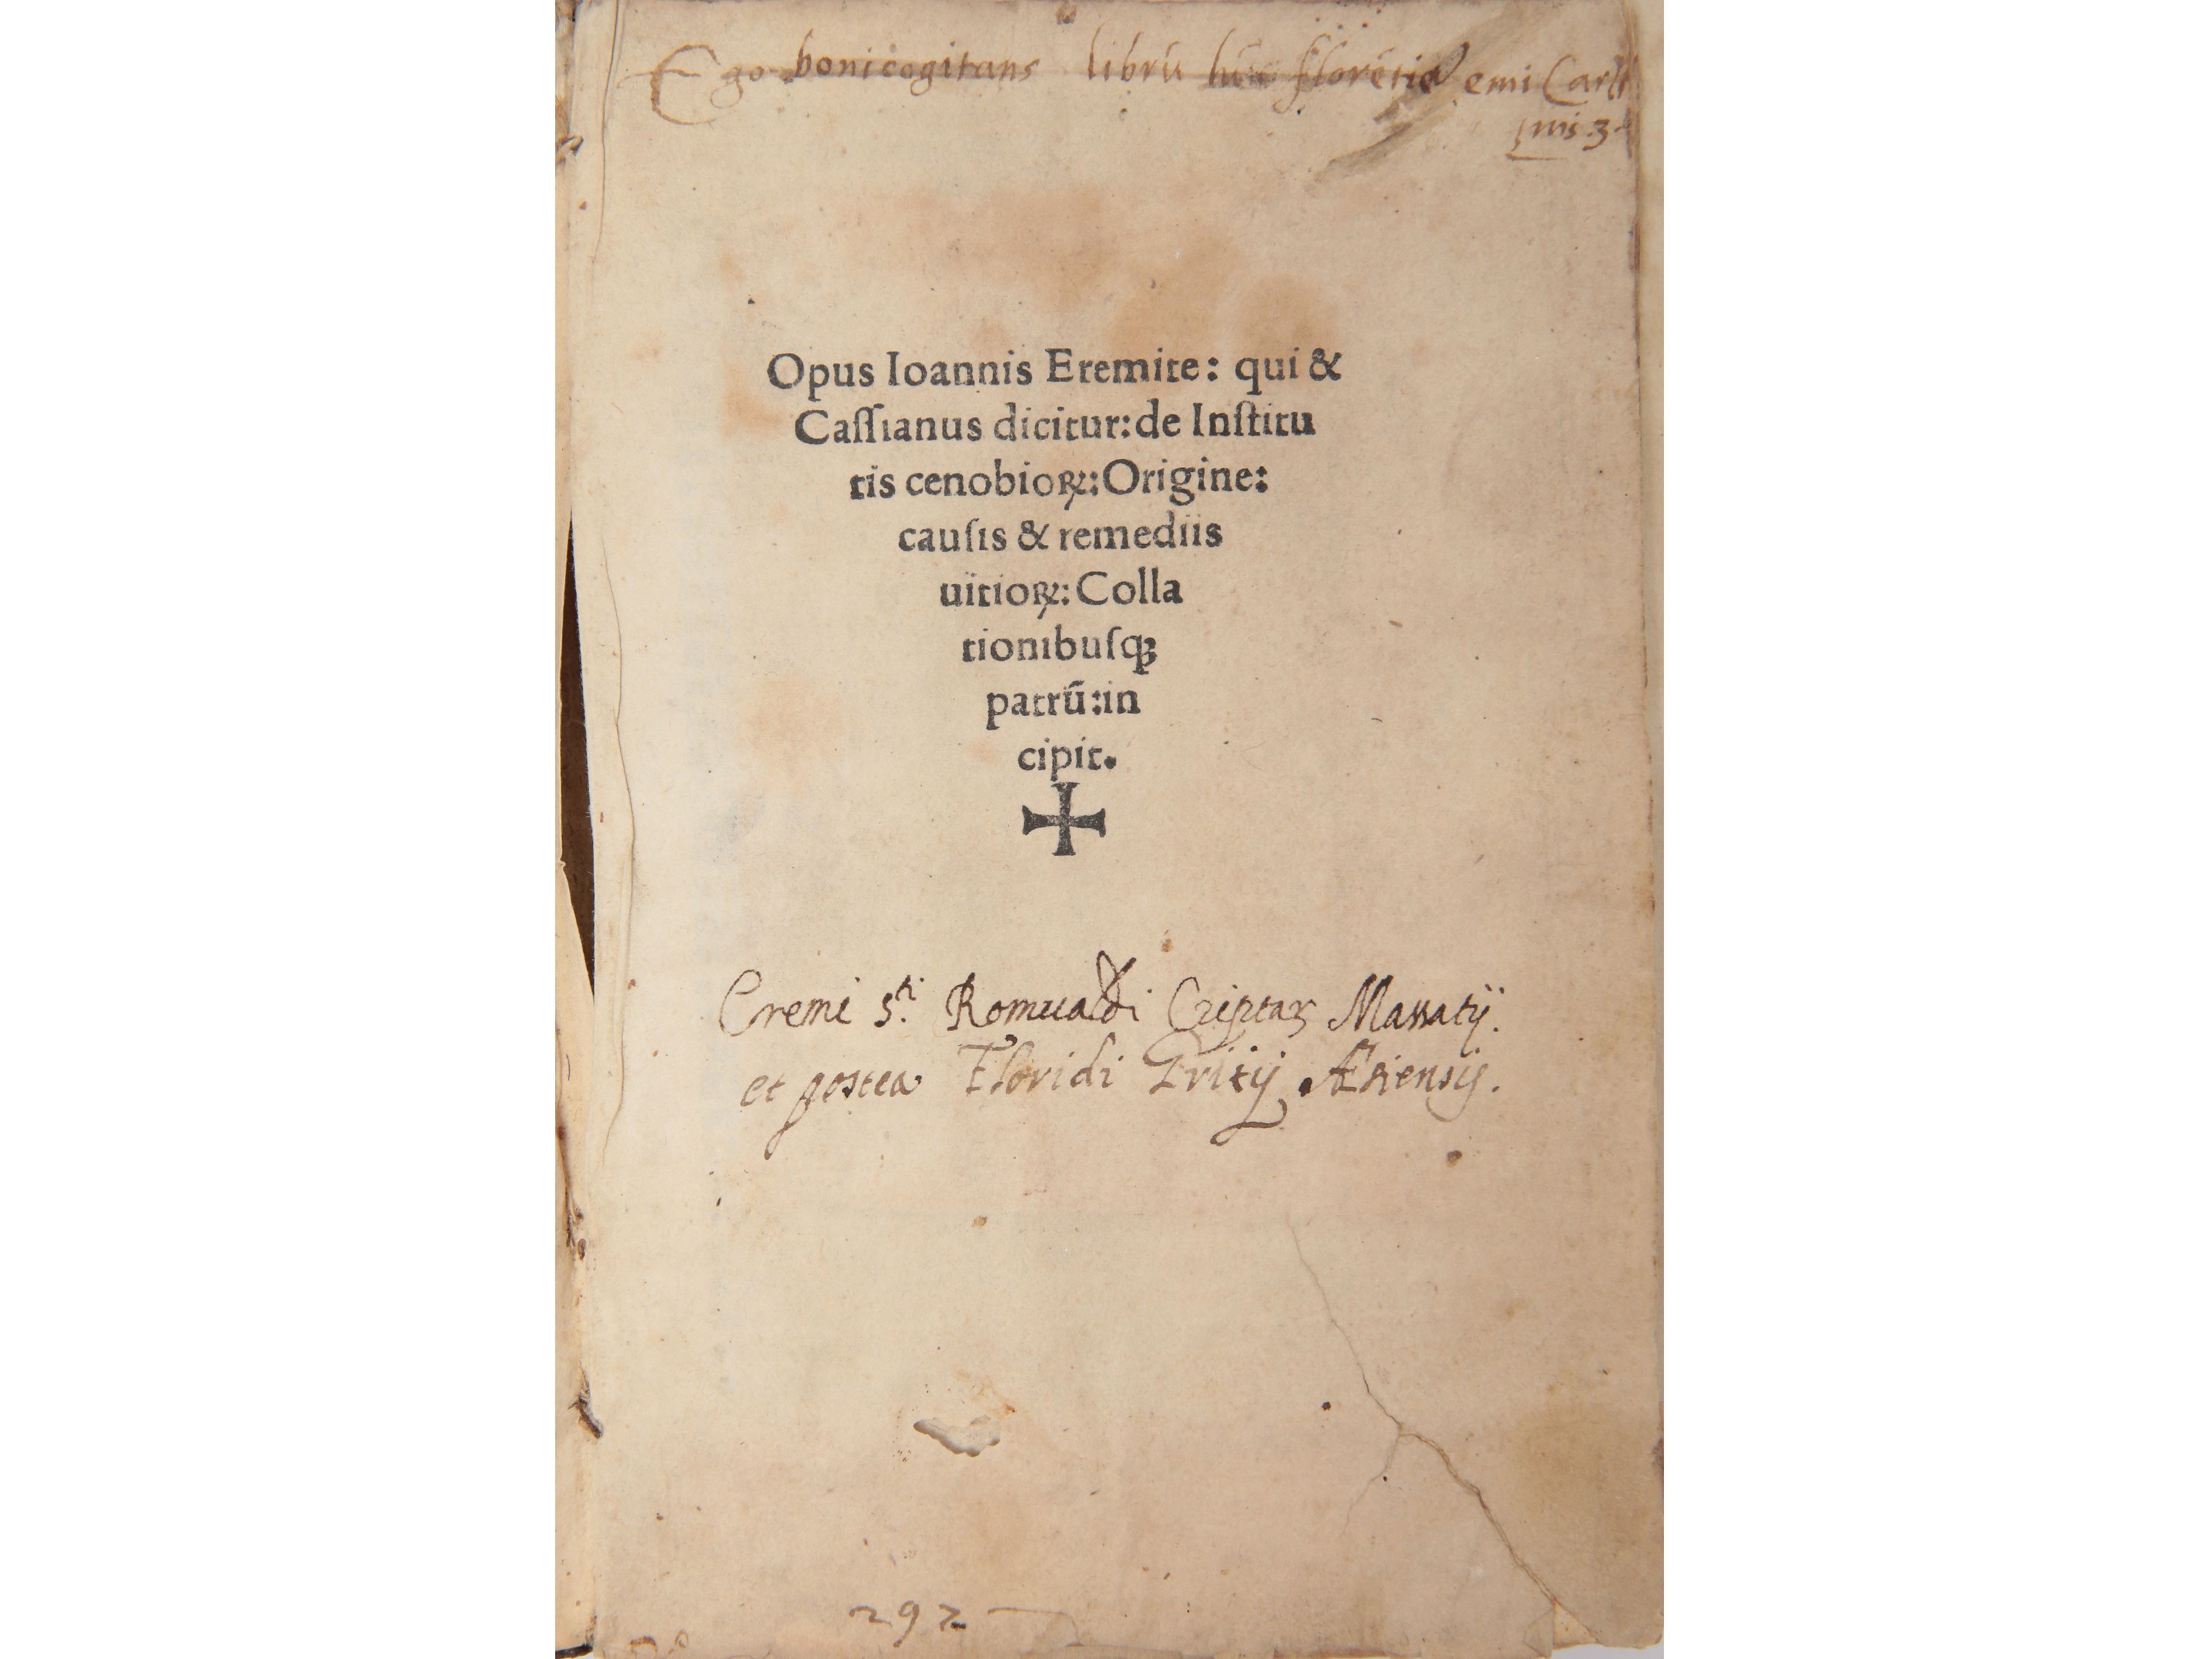 Ego bonicogitans librũ hũc florẽtiæ emi Carli
nis 3
Opus Ioannis Eremite: qui &
Caſſianus dicitur: de Inſtitu
tis cenobioꝝ: Origine:
cauſis & remediis
uitioꝝ: Colla
tionibuſqꝫ
patrũ: in
cipit.
Eremi S.ti Romualdi Criptar Massatij.
et postea Floridi Æsiensis.
292